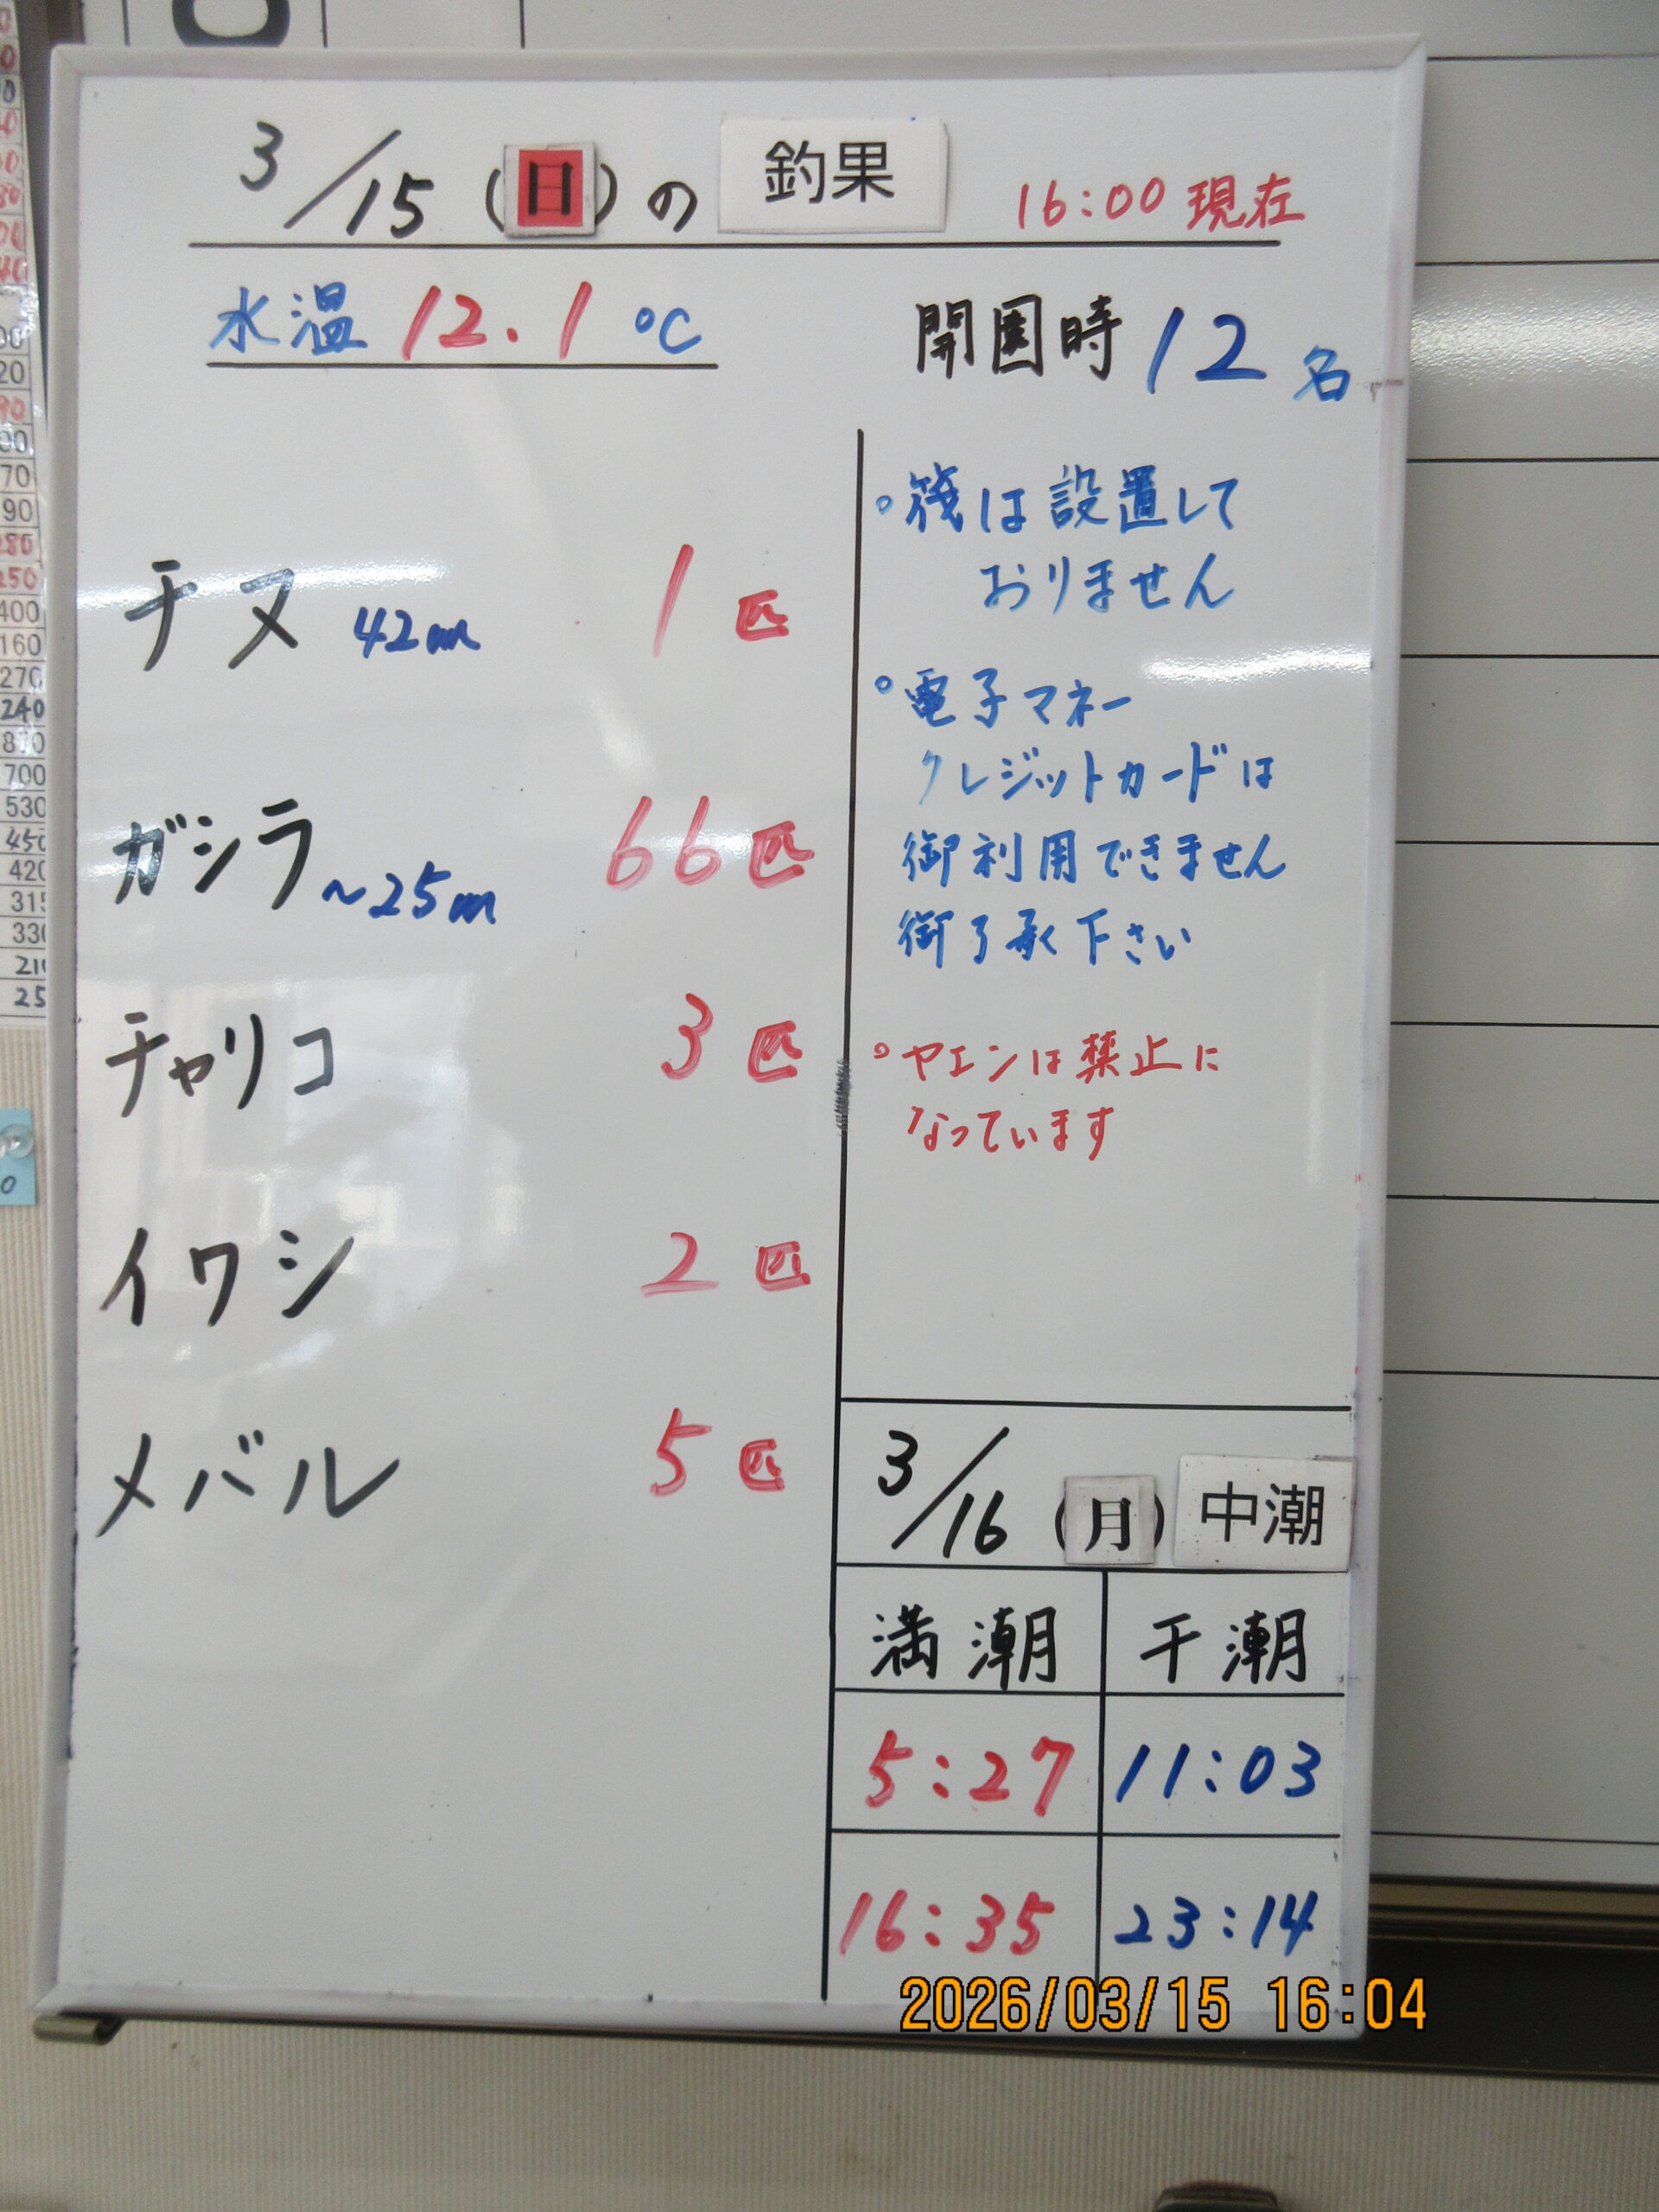 3/15(日)の 釣果 16:00現在
水温 12.1℃
開園時 12名
チヌ 42cm 1匹
ガシラ ~25cm 66匹
チャリコ 3匹
イワシ 2匹
メバル 5匹
。筏は設置して
おりません
。電子マネー
クレジットカードは
御利用できません
御了承下さい
。ヤエンは禁止に
なっています
3/16(月) 中潮
満潮 干潮
5:27 11:03
16:35 23:14
2026/03/15 16:04